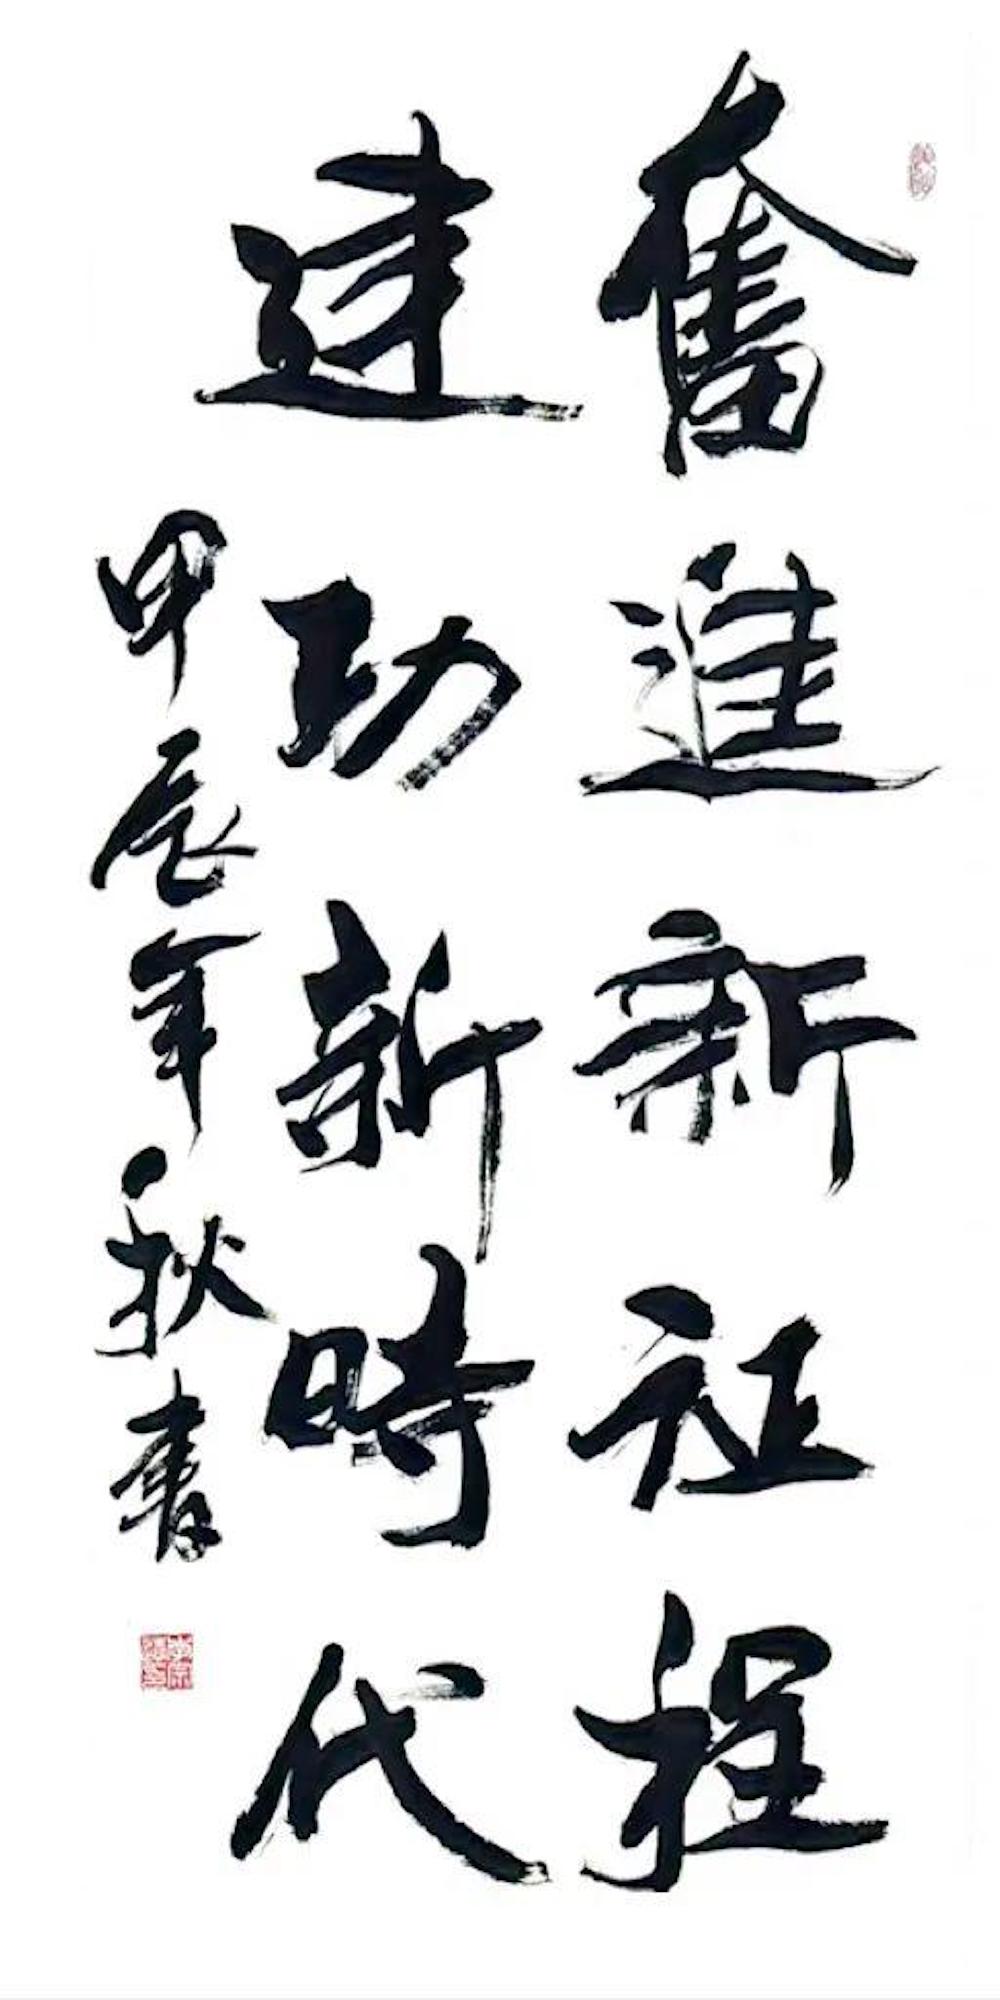 奮進新征程
建功新時代
甲辰年秋書